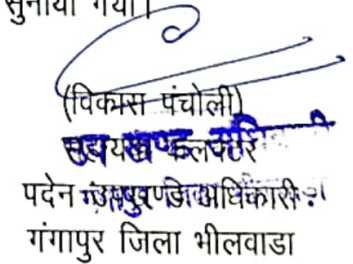 सुनाया गया।
(विकास पंचोली)
सहायक कलक्टर
पदेन उपखण्ड अधिकारी
गंगापुर जिला भीलवाडा